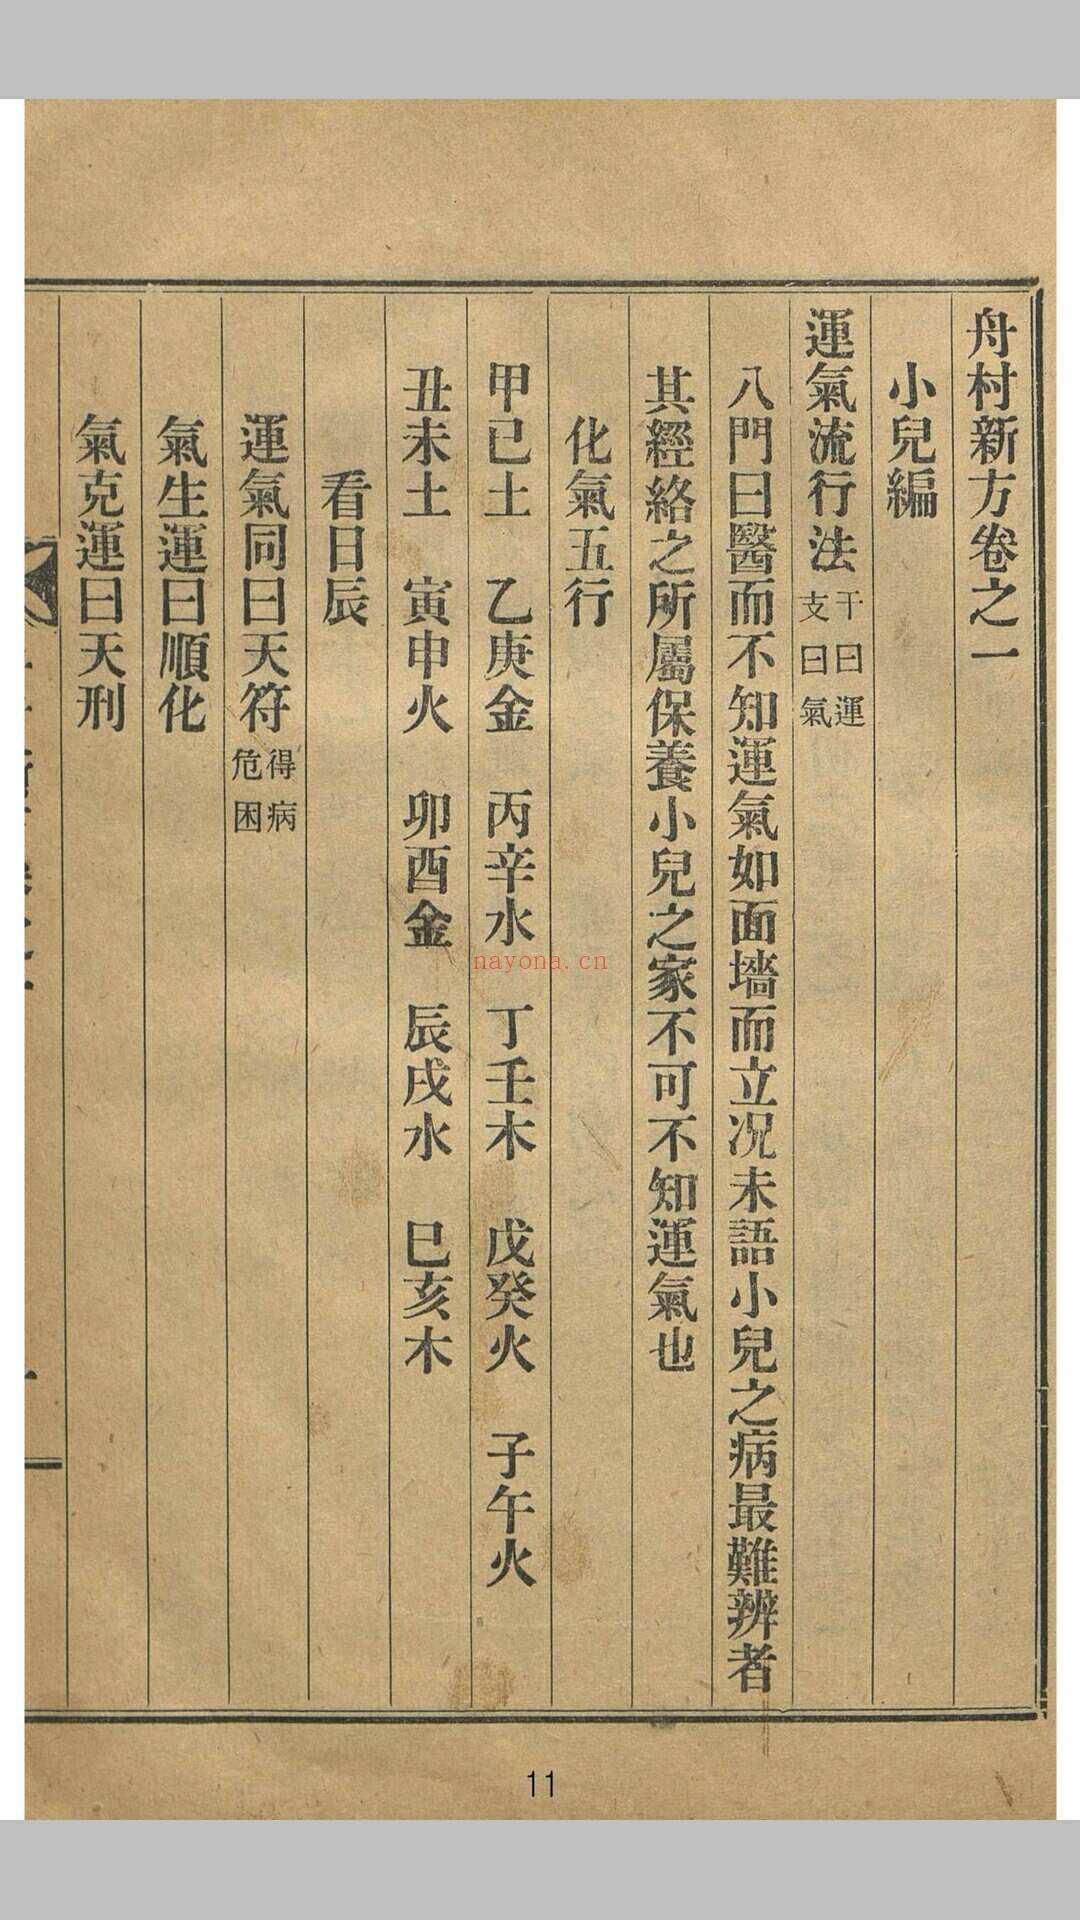 舟村新方卷之一
小兒編
運氣流行法 干曰運 支曰氣
八門曰醫而不知運氣如面墻而立况未語小兒之病最難辨者
其經絡之所屬保養小兒之家不可不知運氣也
化氣五行
甲己土 乙庚金 丙辛水 丁壬木 戊癸火 子午火
丑未土 寅申火 卯酉金 辰戌水 巳亥木
看日辰
運氣同曰天符 得病 危困
氣生運曰順化
氣克運曰天刑
nayona.cn
11